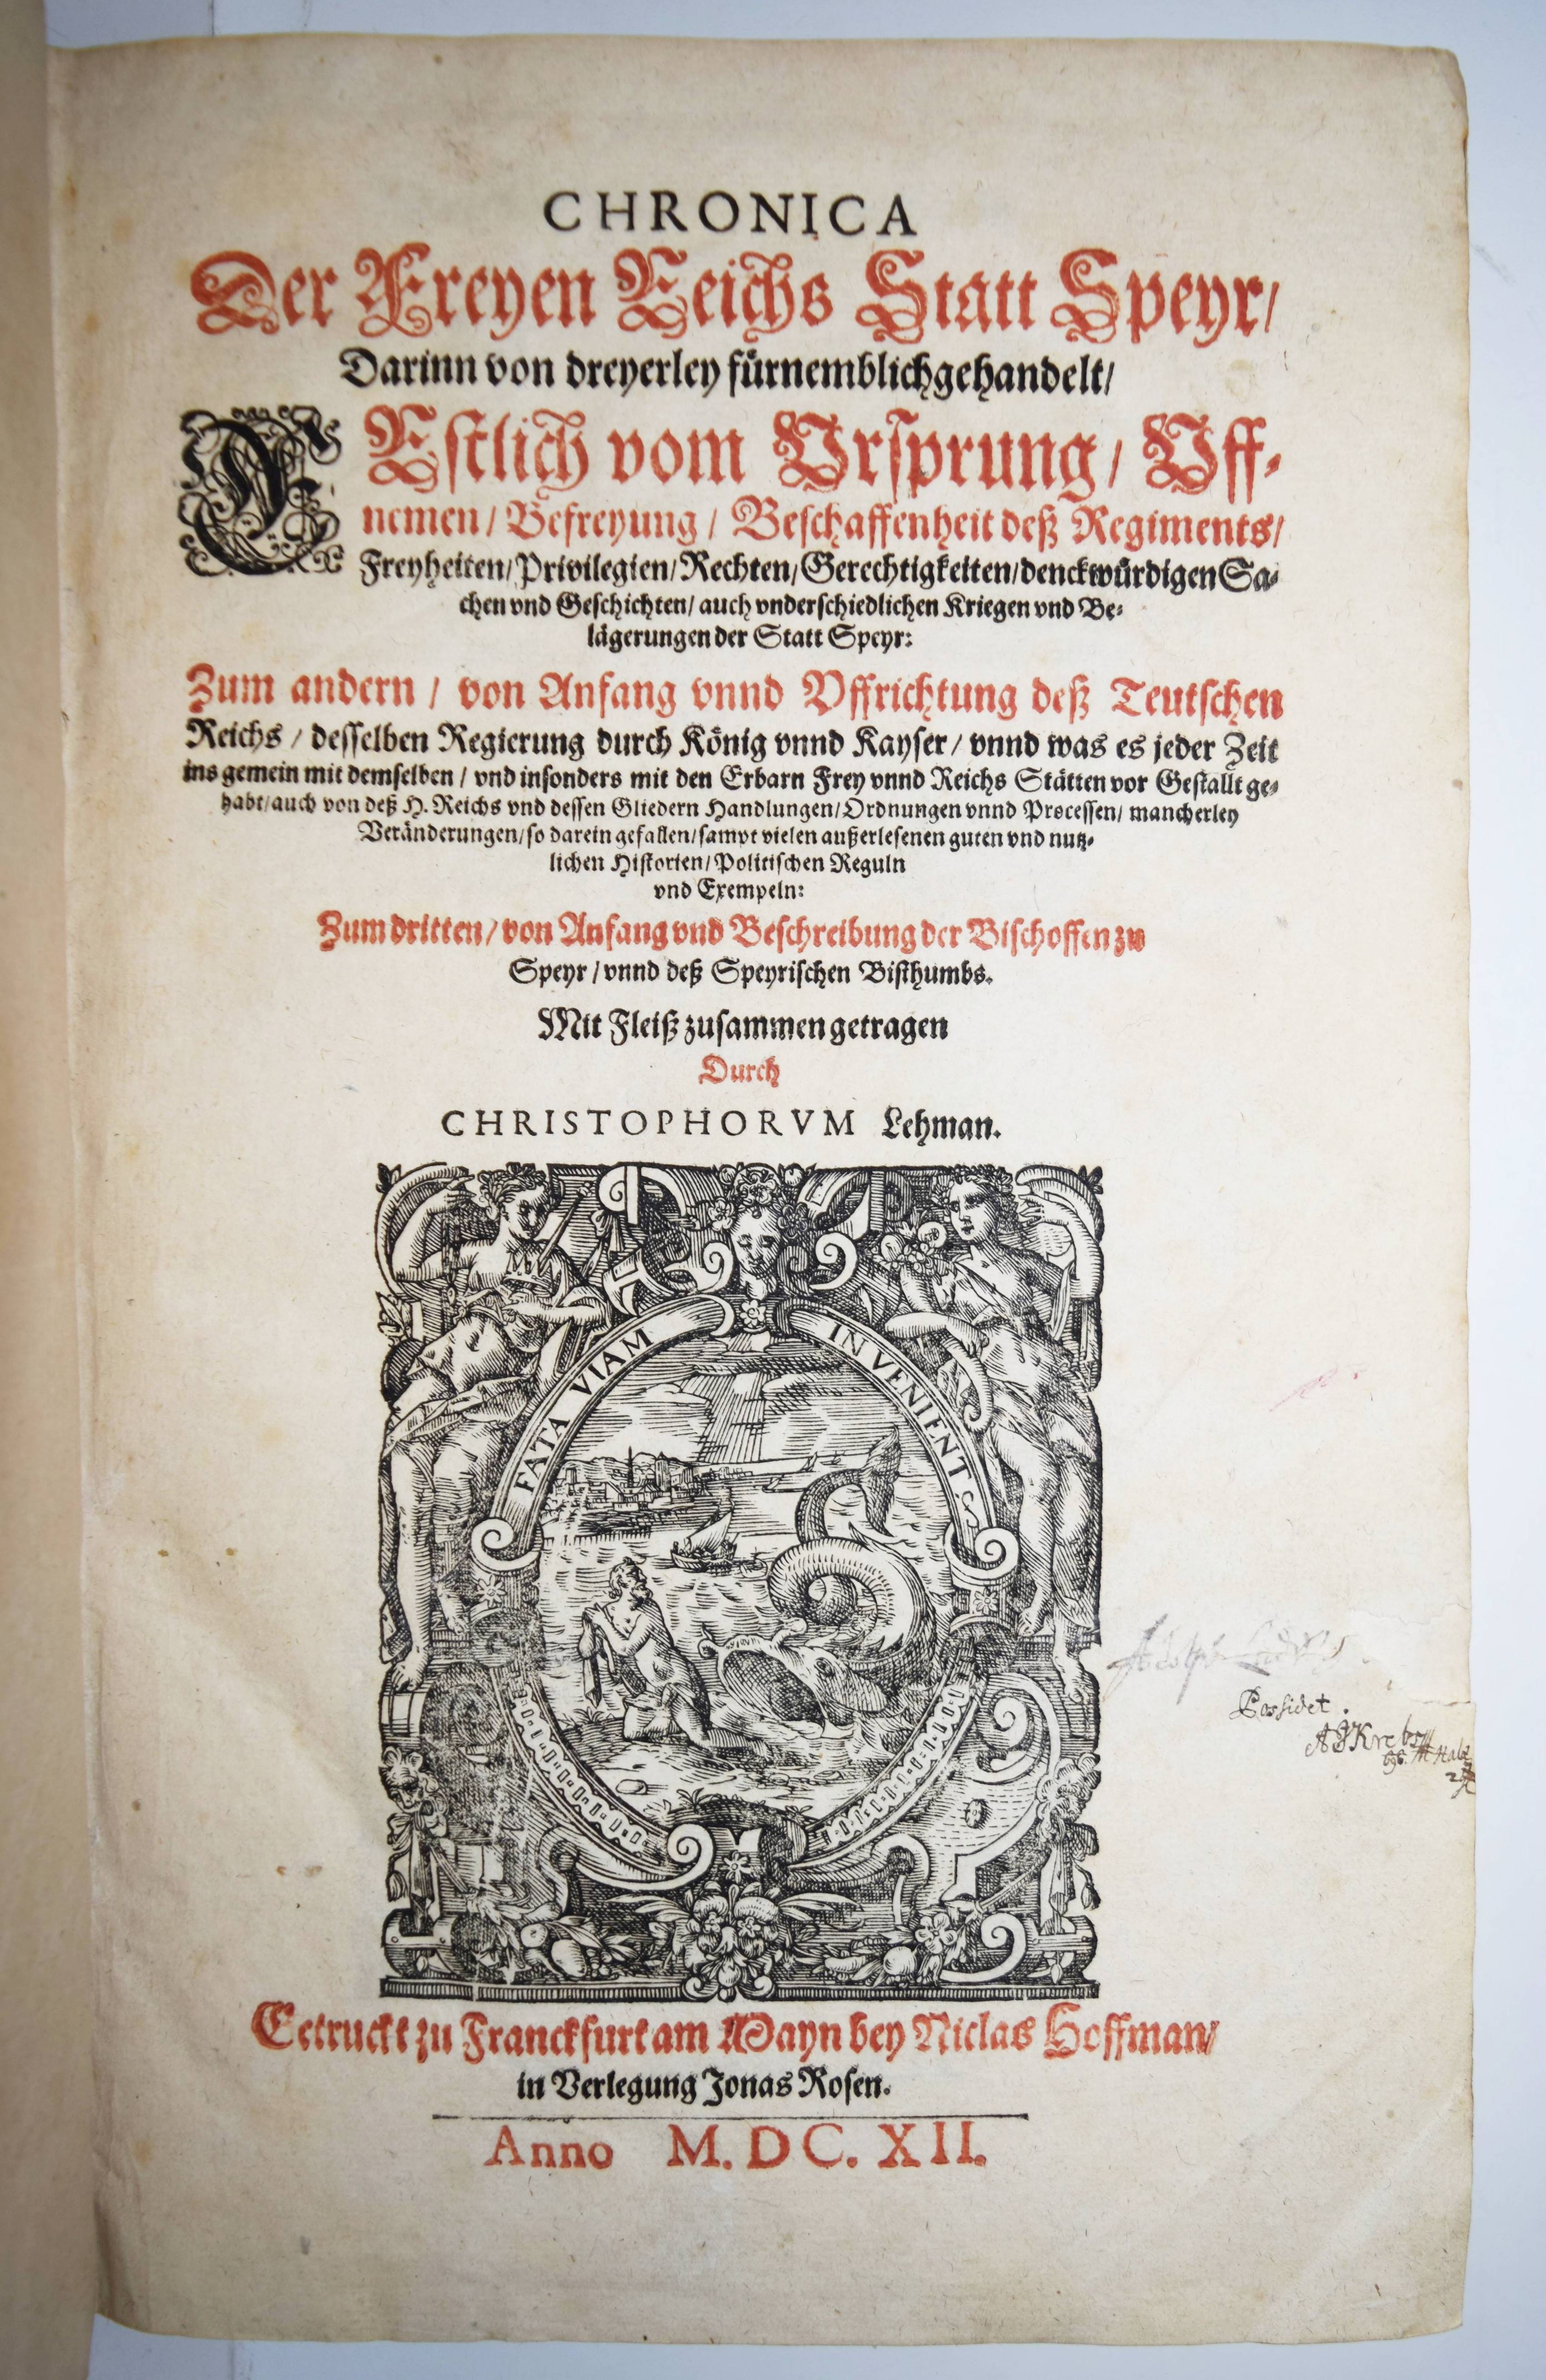 CHRONICA
Der Freyen Reichs Statt Speyr/
Darinn von dreyerley fürnemblich gehandelt/
ERstlich vom Vrsprung/ Vff-
nemen/ Befreyung/ Beschaffenheit deß Regiments/
Freyheiten/ Privilegien/ Rechten/ Gerechtigkeiten/ denckwürdigen Sa-
chen vnd Geschichten/ auch vnderschiedlichen Kriegen vnd Be-
lägerungen der Statt Speyr:
Zum andern/ von Anfang vnnd Vffrichtung deß Teutschen
Reichs/ desselben Regierung durch König vnnd Kayser/ vnnd was es jeder Zeit
ins gemein mit demselben/ vnd insonders mit den Erbarn Frey vnnd Reichs Stätten vor Gestallt ge-
habt/ auch von deß H. Reichs vnd dessen Gliedern Handlungen/ Ordnungen vnnd Processen/ mancherley
Veränderungen/ so darein gefallen/ sampt vielen außerlesenen guten vnd nutz-
lichen Historien/ Politischen Reguln
vnd Exempeln:
Zum dritten/ von Anfang vnd Beschreibung der Bischoffen zu
Speyr/ vnnd deß Speyrischen Bisthumbs.
Mit Fleiß zusammen getragen
Durch
CHRISTOPHORVM Lehman.
FATA VIAM INVENIENT
Possidet.
Getruckt zu Franckfurt am Mayn bey Niclas Hoffman/
in Verlegung Jonas Rosen.
Anno M. DC. XII.